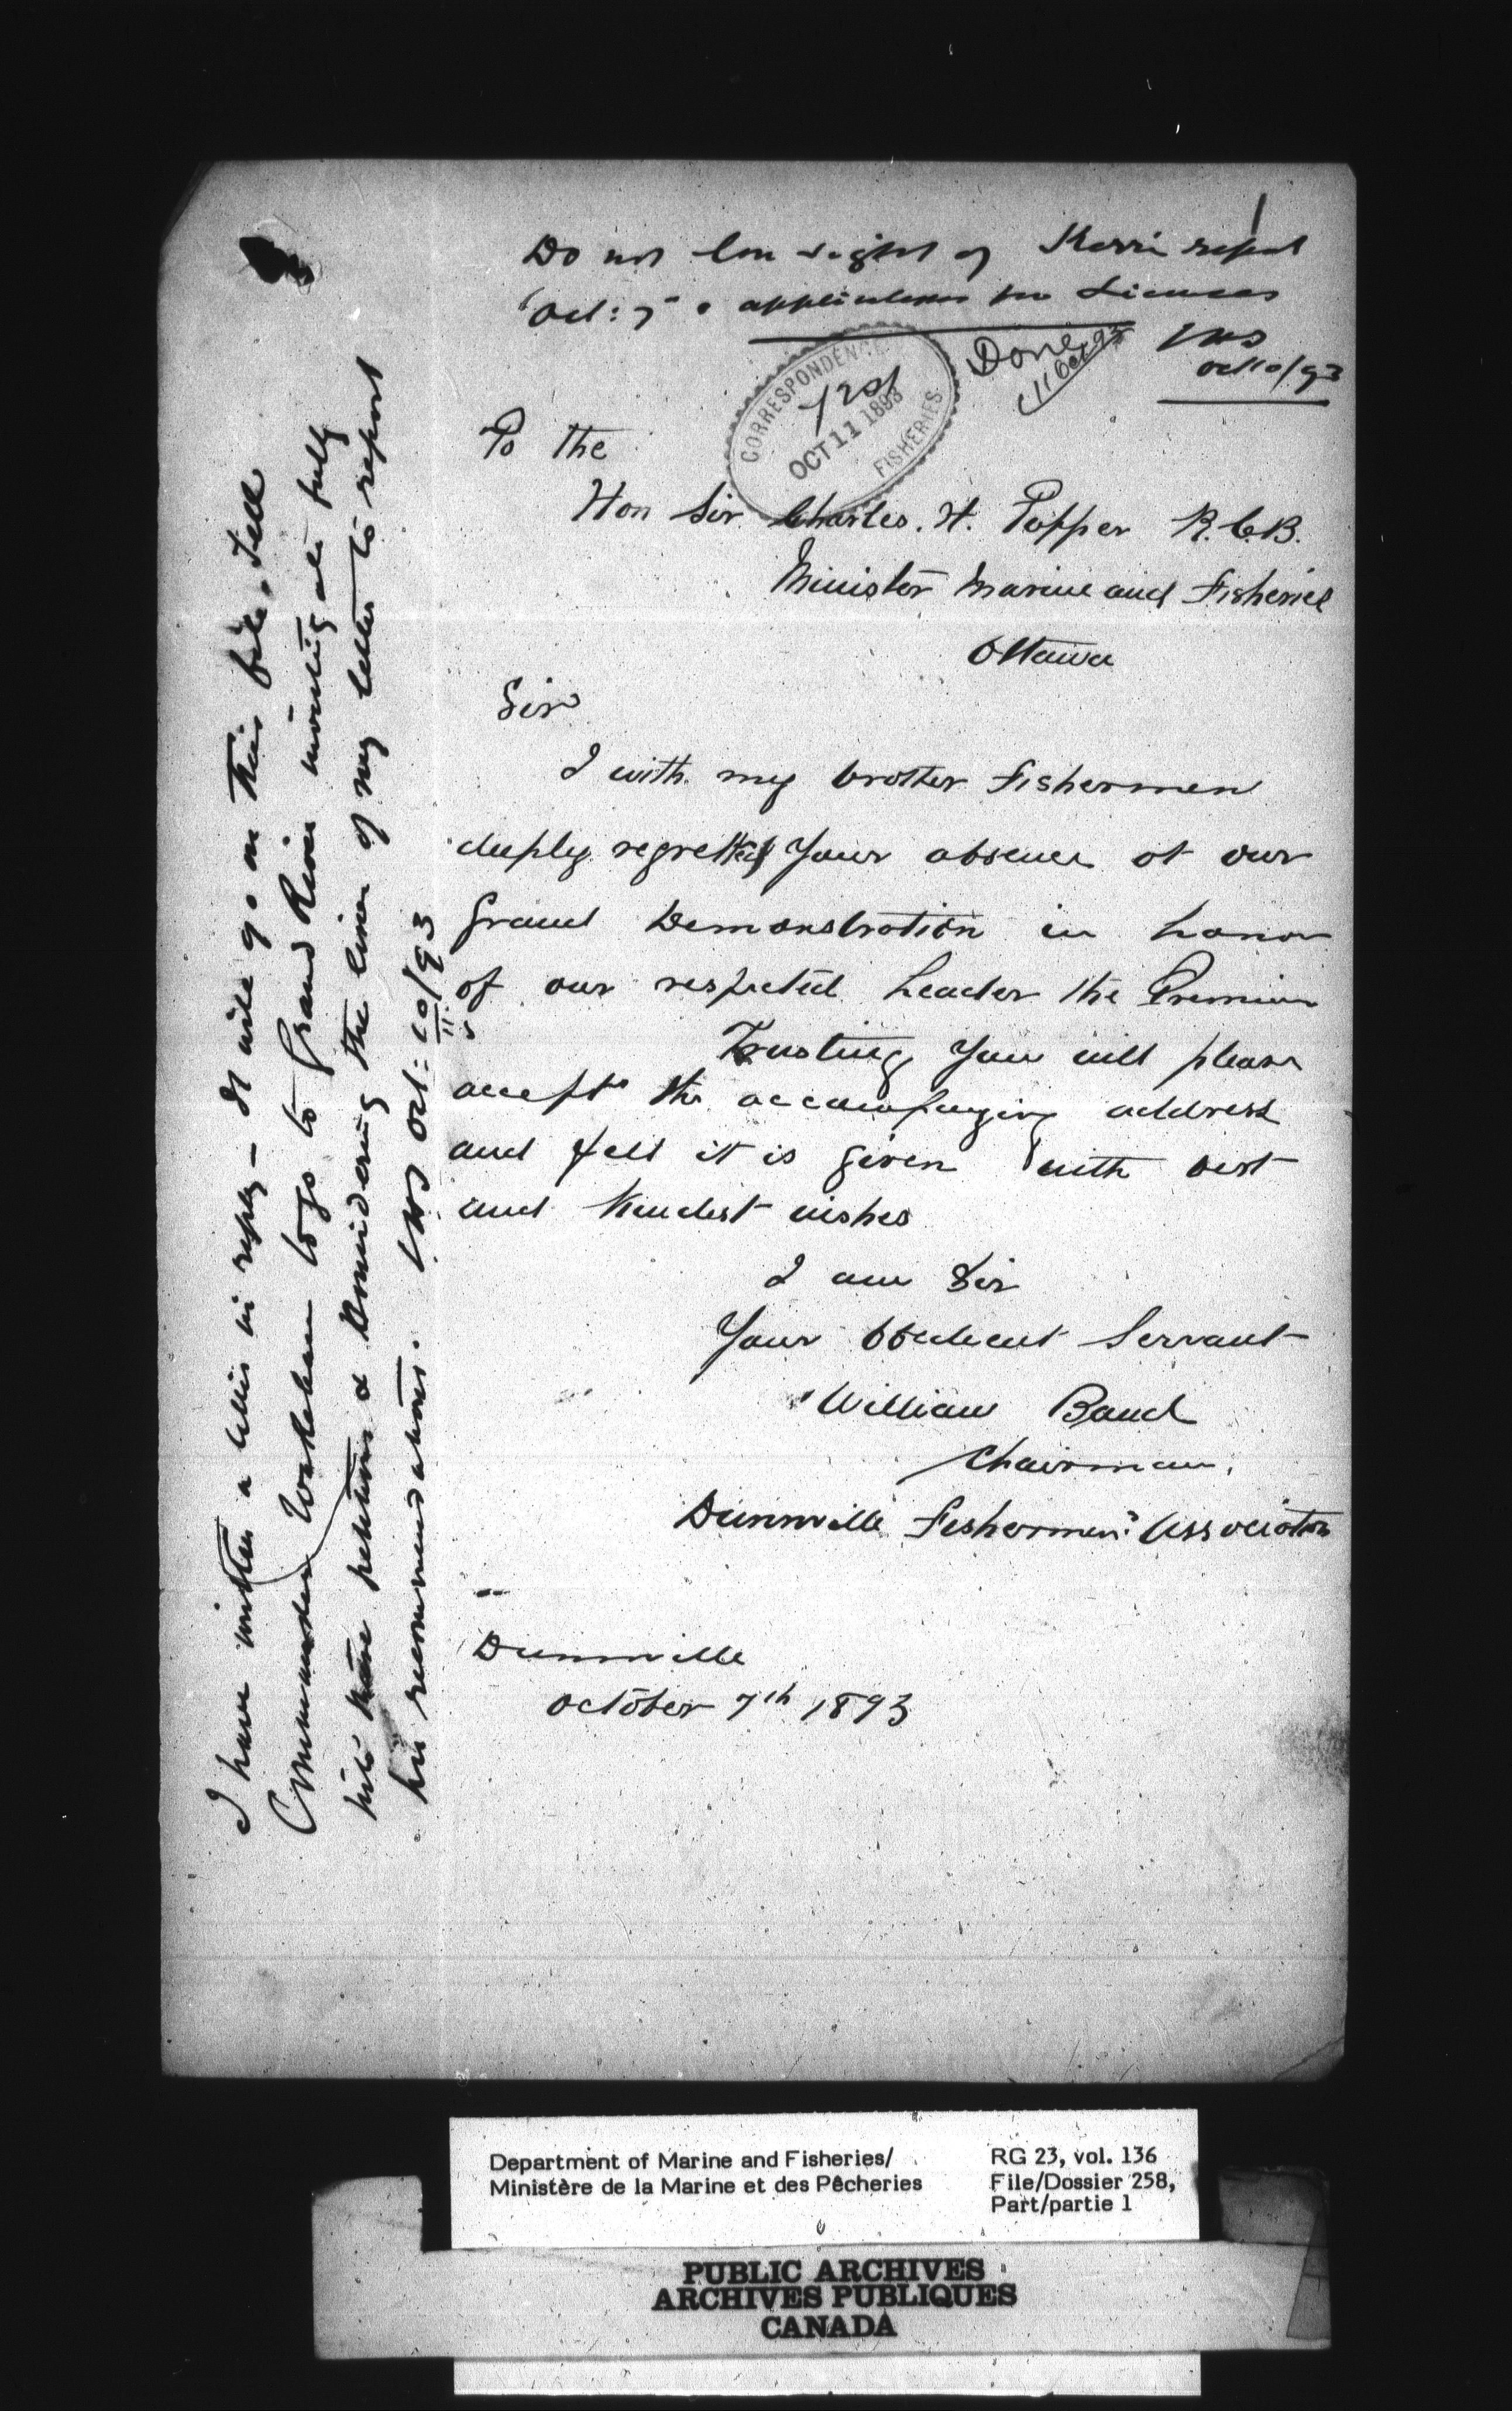 1
Do not lose sight of Kerr's report
Oct: 7 & applications for Licenses
Done
11 Oct 93
Oct 10/93
CORRESPONDENCE
OCT 11 1893
FISHERIES
To the
Hon Sir Charles. H. Tupper K.C.B.
Minister Marine and Fisheries
Ottawa
Sir
I with my brother Fishermen
deeply regretted Your absence at our
Grand Demonstration in honor
of our respected Leader the Premier
Trusting You will please
accept the accompanying address
and feel it is given with best
and kindest wishes
I am Sir
Your Obedient Servant
William Band
Chairman,
Dunnville Fishermen's Association
Dunnville
October 7th 1893
I have written a letter in reply - It will go on this file. Tell
Commander Wakeham to go to Grand River investigate fully
into these petitions & considering the lines of my letter to report
his recommendations. Oct: 10/93
Department of Marine and Fisheries/
Ministère de la Marine et des Pêcheries
RG 23, vol. 136
File/Dossier 258,
Part/partie 1
PUBLIC ARCHIVES
ARCHIVES PUBLIQUES
CANADA